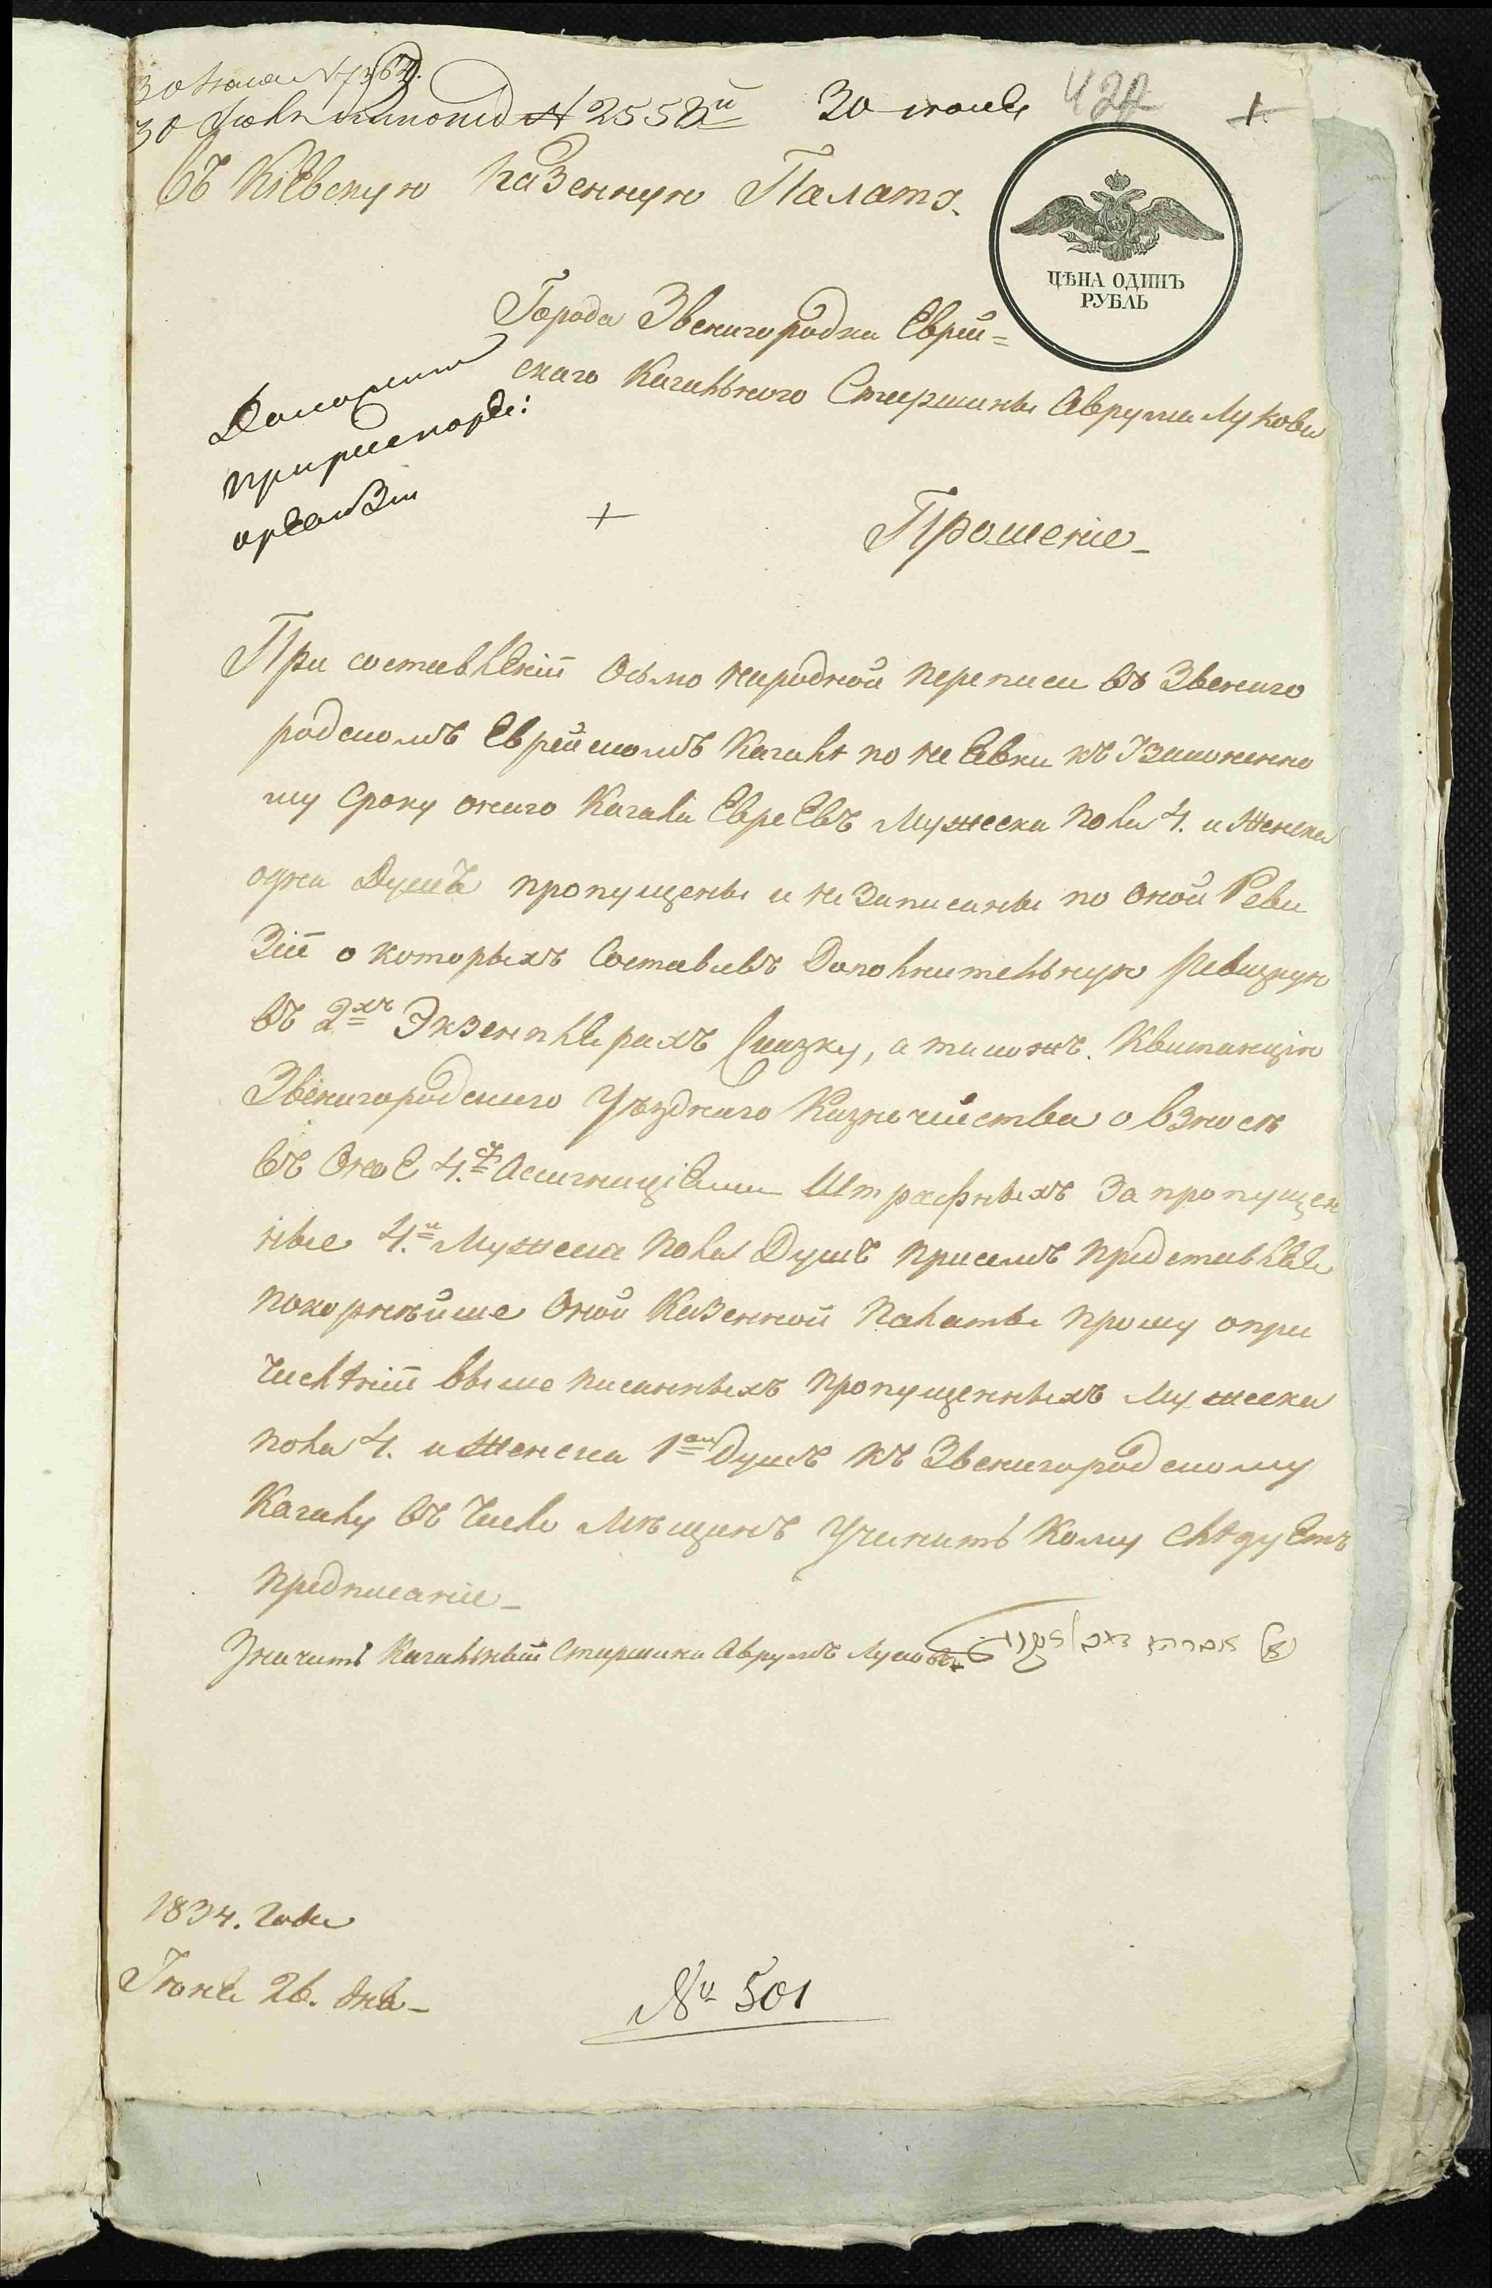 30 июня 422 1
въ Кіевскую Казенную Палату.
ЦѢНА ОДИНЪ
РУБЛЬ
Города Звенигородки Еврей=
скаго Кагального Старшины Аврума Лукова
Прошеніе
При составленіи Осьмо народной переписи въ Звениго
родскомъ Еврейскомъ Кагалѣ по не Явки къ Узаконенно
му Сроку онаго Кагала Евреевъ Мужеска пола 4. и Женска
одна Душъ пропущены и не записаны по оной Реви
зіи о которыхъ Составивъ Дополнительную Ревизкую
въ 2хъ Экземплярахъ Сказку, а такожъ Квитанцію
Звенигородскаго Уѣзднаго Казначейства о взносѣ
въ Оное Асигнаціями Штрафныхъ За пропущен
ные 4. Мужеска пола Душъ присемъ представляя
покорнѣйше Оной Казенной Палаты прошу опри
численіи выше писанныхъ пропущенныхъ Мужеска
пола 4. и Женска 1 Душъ къ Звенигородскому
Кагалу въ числѣ Мѣщанъ Учинить Кому слѣдуетъ
предписаніе
Кагальный Старшина Аврумъ
1834. Года
Іюня 26. дня
№ 501